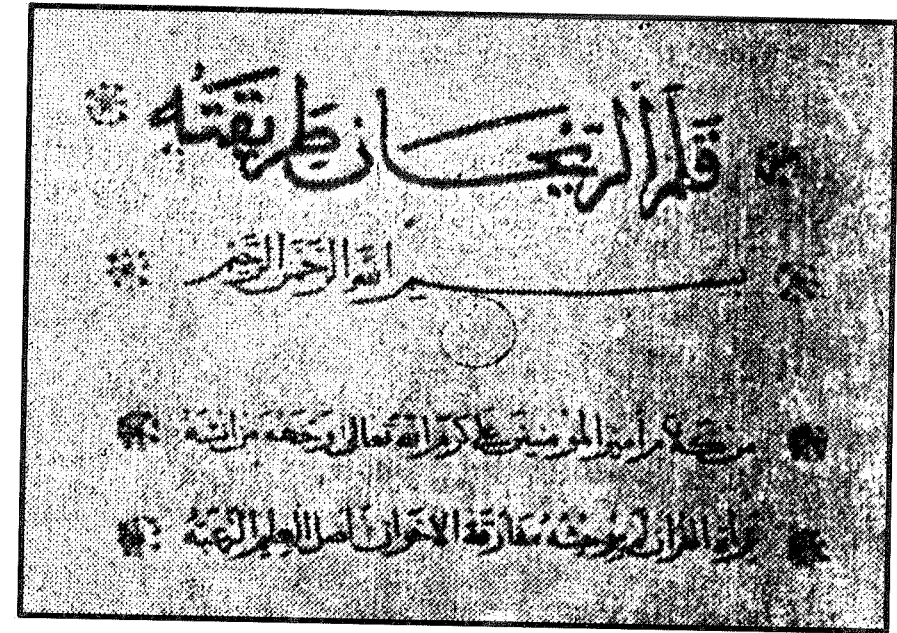 قلم الريحان طريقته
بسم الله الرحمن الرحيم
من كلام أمير المؤمنين علي كرم الله تعالى وجهه من أنس
بقراءة القرآن لم يوحشه مفارقة الاخوان أصل العلم الرغبة